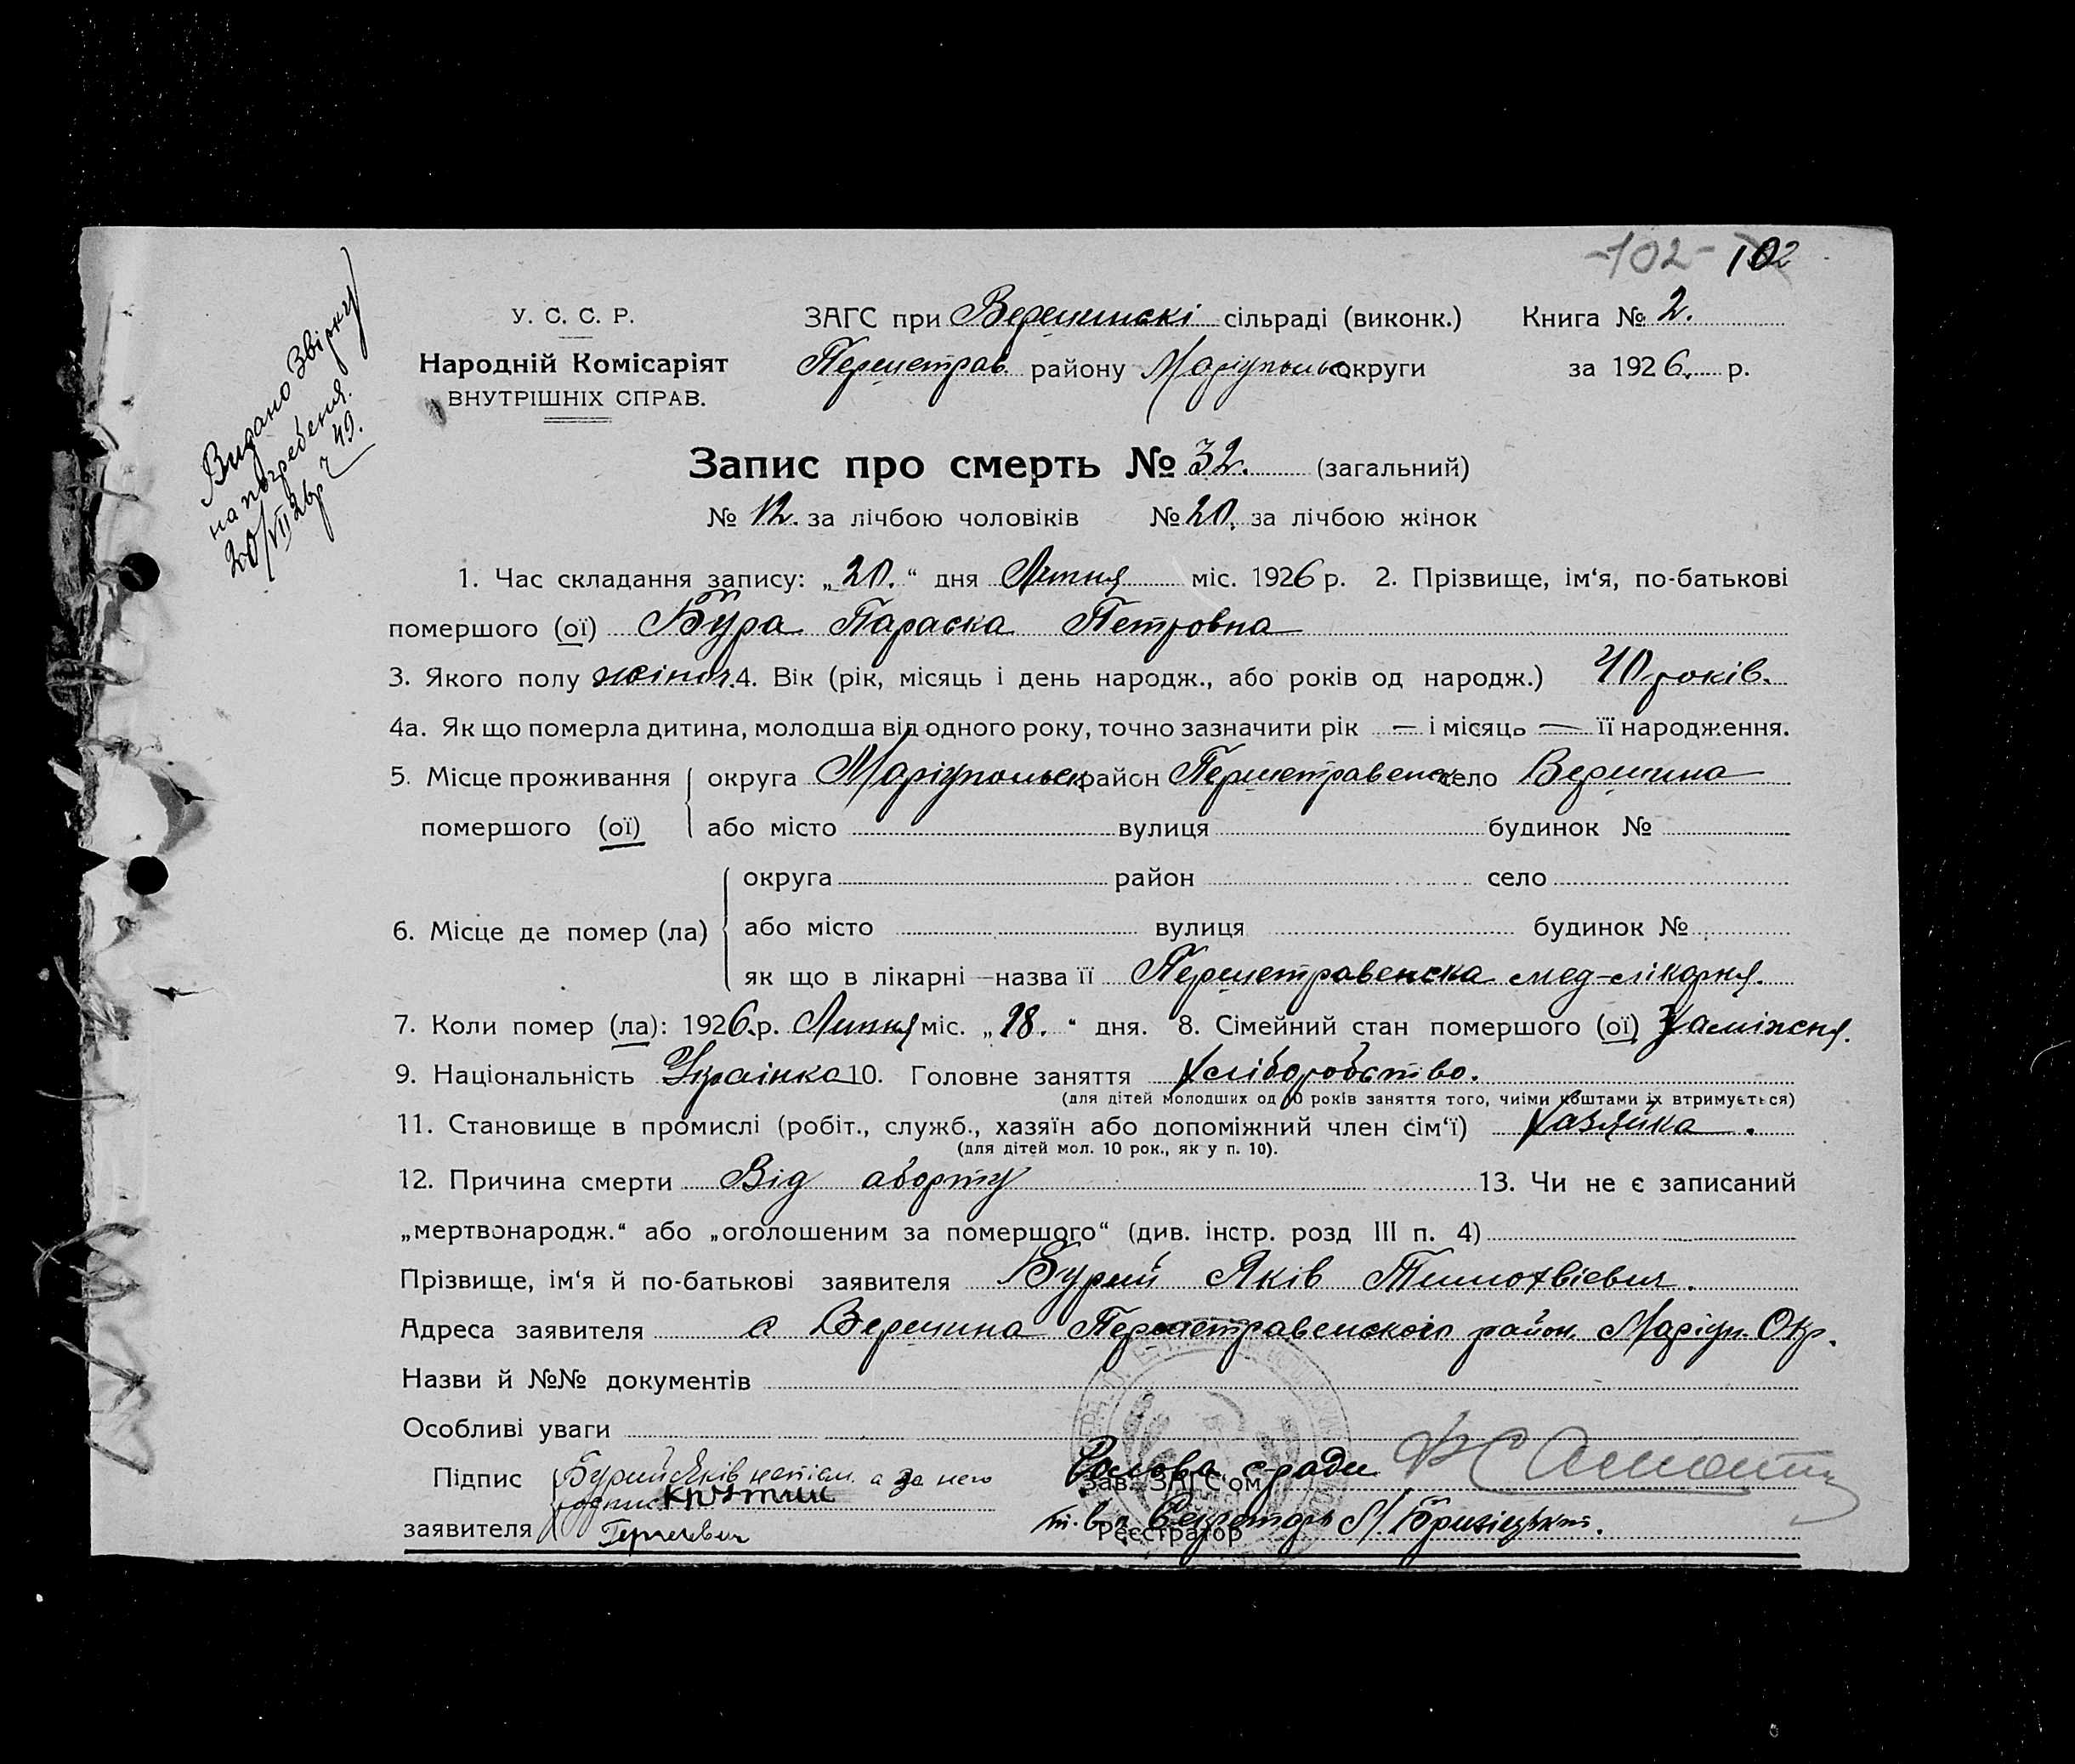 -102- 102
Видано Звірку
на погребення.
20/VII 26р ч 49.
У. С. С. Р.
Народній Комісаріят
ВНУТРІШНІХ СПРАВ.
ЗАГС при Вершинскі сільраді (виконк.) Книга № 2.
Першетрав. району Маріупольс округи за 1926. р.
Запис про смерть № 32. (загальний)
№ 12. за лічбою чоловіків № 20. за лічбою жінок
1. Час складання запису: „20.“ дня Липня міс. 1926 р. 2. Прізвище, ім‘я, по-батькові
помершого (ої) Бура Параска Петровна
3. Якого полу жіноч. 4. Вік (рік, місяць і день народж., або років од народж.) 40 років.
4а. Як що померла дитина, молодша від одного року, точно зазначити рік — і місяць — її народження.
5. Місце проживання округа Маріупольск район Першетравенск село Вершина
помершого (ої) або місто вулиця будинок №
округа район село
6. Місце де помер (ла) або місто вулиця будинок №
як що в лікарні — назва її Першетравенска мед-лікарня.
7. Коли помер (ла): 1926. р. Липня міс. „18.“ дня. 8. Сімейний стан помершого (ої) Заміжня.
9. Національність Українка 10. Головне заняття Хліборобство.
(для дітей молодших од 10 років заняття того, чиїми коштами їх втримується)
11. Становище в промислі (робіт., служб., хазяїн або допоміжний член сім‘ї) Хазяйка.
(для дітей мол. 10 рок., як у п. 10).
12. Причина смерти Від аборту 13. Чи не є записаний
„мертвонародж.“ або „оголошеним за помершого“ (див. інстр. розд III п. 4)
Прізвище, ім‘я й по-батькові заявителя Бурий Яків Тимохвієвич.
Адреса заявителя с Вершина Першетравенского район. Маріуп. Окр.
Назви й №№ документів
Особливі уваги
Підпис Бурий Яків неписм. а за него Голова с-ради
Зав. ЗАГС‘ом
заявителя т. в. п. Секретарь
Реєстратор